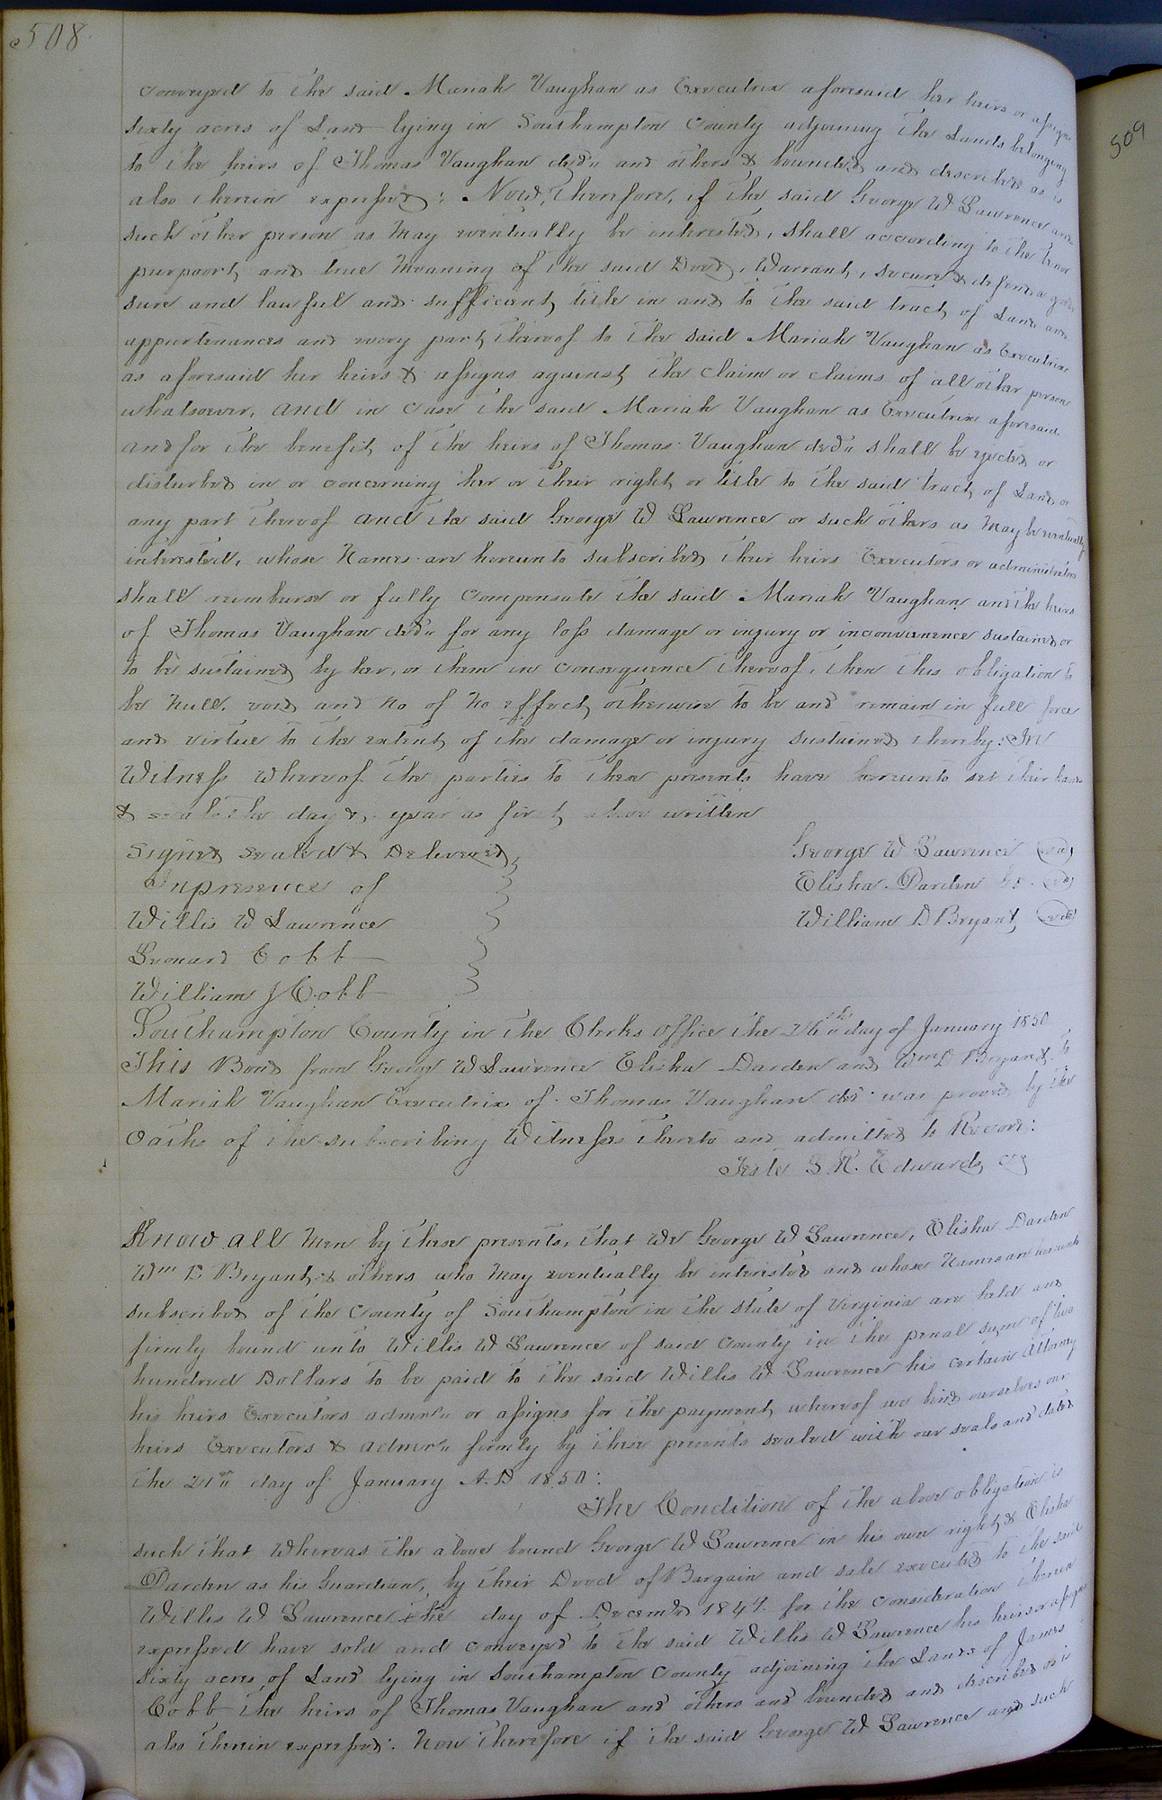 508
conveyed to the said Mariah Vaughan as Executrix aforesaid her heirs or assigns
sixty acres of Land lying in Southampton County adjoining the Lands belonging
to the heirs of Thomas Vaughan decd and others & bounded and described as is
also therein expressed: Now, therefore, if the said George W Lawrence and
such other person as may eventually be interested, shall according to the tenor
purport, and true meaning of the said Deed, Warrant, secure & defend a good
sure and lawful and sufficient, title in and to the said tract of Land and
appurtenances and every part thereof to the said Mariah Vaughan as Executrix
as aforesaid her heirs & assigns against, the claim or claims of all other person
whatsoever, and in case the said Mariah Vaughan as Executrix aforesaid
and for the benefit of the heirs of Thomas Vaughan decd shall be ejected or
disturbed in or concerning her or their right or title to the said tract of Land, or
any part thereof and the said George W Lawrence or such others as may be eventually
interested, whose Names are hereunto subscribed their heirs Executors or administrators
shall reimburse or fully compensate the said Mariah Vaughan and the heirs
of Thomas Vaughan decd for any loss damage or injury or inconvenience sustained or
to be sustained by her, or them in consequence thereof, then this obligation to
be Null, void and no of no effect, otherwise to be and remain in full force
and virtue to the extent, of the damage or injury sustained thereby: In
Witness whereof the parties to these presents have hereunto set their hands
& seals the day & year as first above written
Signed sealed & Delivered,
In presence of
Willis W Lawrence
Leonard Cobb
William J Cobb
George W Lawrence seal
Elisha Darden seal
William D Bryant seal
Southampton County in the Clerks office the 26th day of January 1850
This Bond from George W Lawrence Elisha Darden and Wm D Bryant to
Mariah Vaughan Executrix of Thomas Vaughan dec was proved by the
Oaths of the subscribing Witnesses thereto and admitted to Record:
Teste L R. Edwards, CC
Know all Men by these presents, that We George W Lawrence, Elisha Darden
Wm D Bryant, & others who may eventually be interested and whose Names are hereunto
subscribed of the County of Southampton in the state of Virginia are held and
firmly bound unto Willis W Lawrence of said County in the penal sum of two
hundred Dollars to be paid to the said Willis W Lawrence his certain Attorney
his heirs Executors admors or assigns for the payment, whereof we bind ourselves our
heirs Executors & admors firmly by these presents sealed with our seals and dated
the 21st day of January A.D 1850:
The Condition of the above obligation is
such that Whereas the above bound George W Lawrence in his own right, & Elisha
Darden as his Guardian, by their Deed of Bargain and sale executed to the said
Willis W Lawrence the day of December 1849 for the consideration therein
expressed have sold and conveyed to the said Willis W Lawrence his heirs or assigns
sixty acres, of Land lying in Southampton County adjoining the Lands of James
Cobb the heirs of Thomas Vaughan and others and bounded and described as is
also therein expressed: Now therefore if the said George W Lawrence and such
509